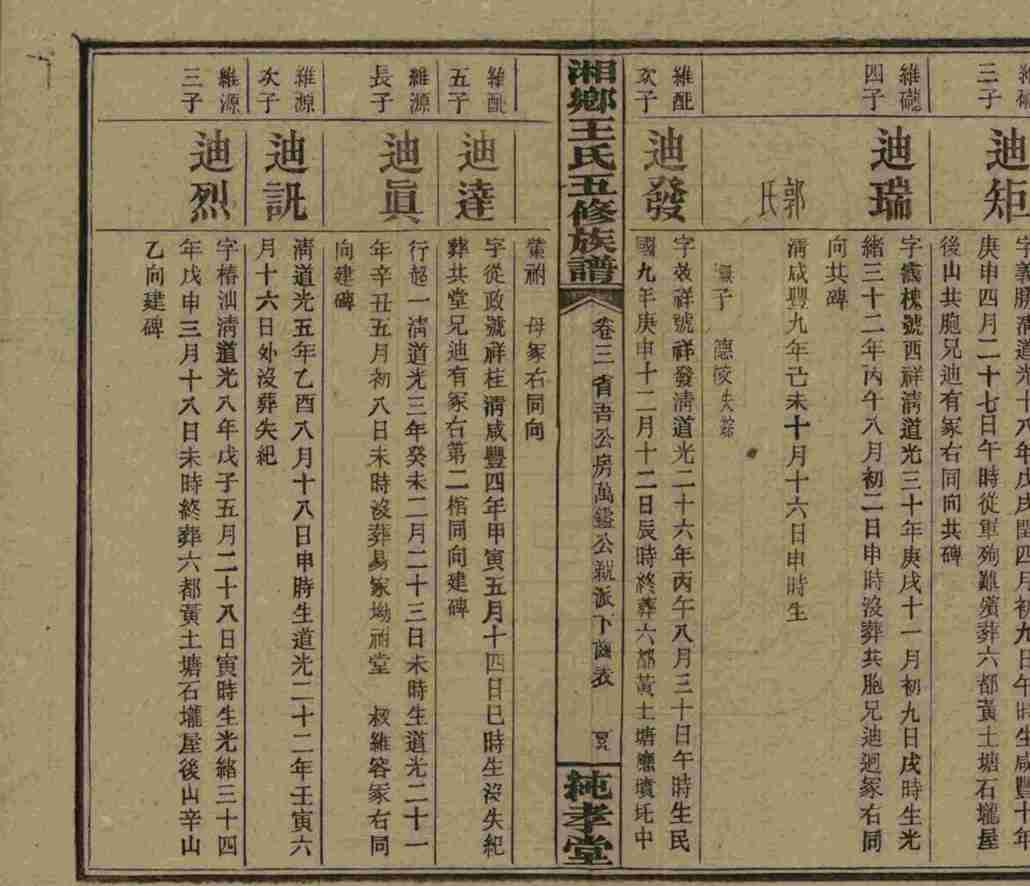 三子
迪矩
字義勝清道光十八年戊戌閏四月初九日午時生咸豐十年
庚申四月二十七日午時從軍殉難殯葬六都黃土塘石壠屋
後山共胞兄迪有冢右同向共碑
維礲
四子
迪瑞
字繊槐號西祥清道光三十年庚戌十一月初九日戌時生光
緒三十二年丙午八月初二日申時沒葬共胞兄迪迥冢右同
向共碑
郭氏
清咸豐九年己未十月十六日申時生
子 德陵失踪
維配
次子
迪發
字效祥號祥發清道光二十六年丙午八月三十日午時生民
國九年庚申十二月十二日辰時終葬六都黃土塘廰墳圫中
湘鄉王氏五修族譜
卷三 省吾公房萬鎰公派下齒表
純孝堂
葉祔 母冢右同向
維配
五子
迪達
字從政號祥桂清咸豐四年甲寅五月十四日巳時生沒失紀
葬共堂兄迪有冢右第二棺同向建碑
維源
長子
迪眞
行起一清道光三年癸未二月二十三日未時生道光二十一
年辛丑五月初八日未時沒葬易家坳祔堂 叔維容冢右同
向建碑
維源
次子
迪訊
清道光五年乙酉八月十八日申時生道光二十二年壬寅六
月十六日外沒葬失紀
維源
三子
迪烈
字椿汕清道光八年戊子五月二十八日寅時生光緒三十四
年戊申三月十八日未時終葬六都黃土塘石壠屋後山辛山
乙向建碑